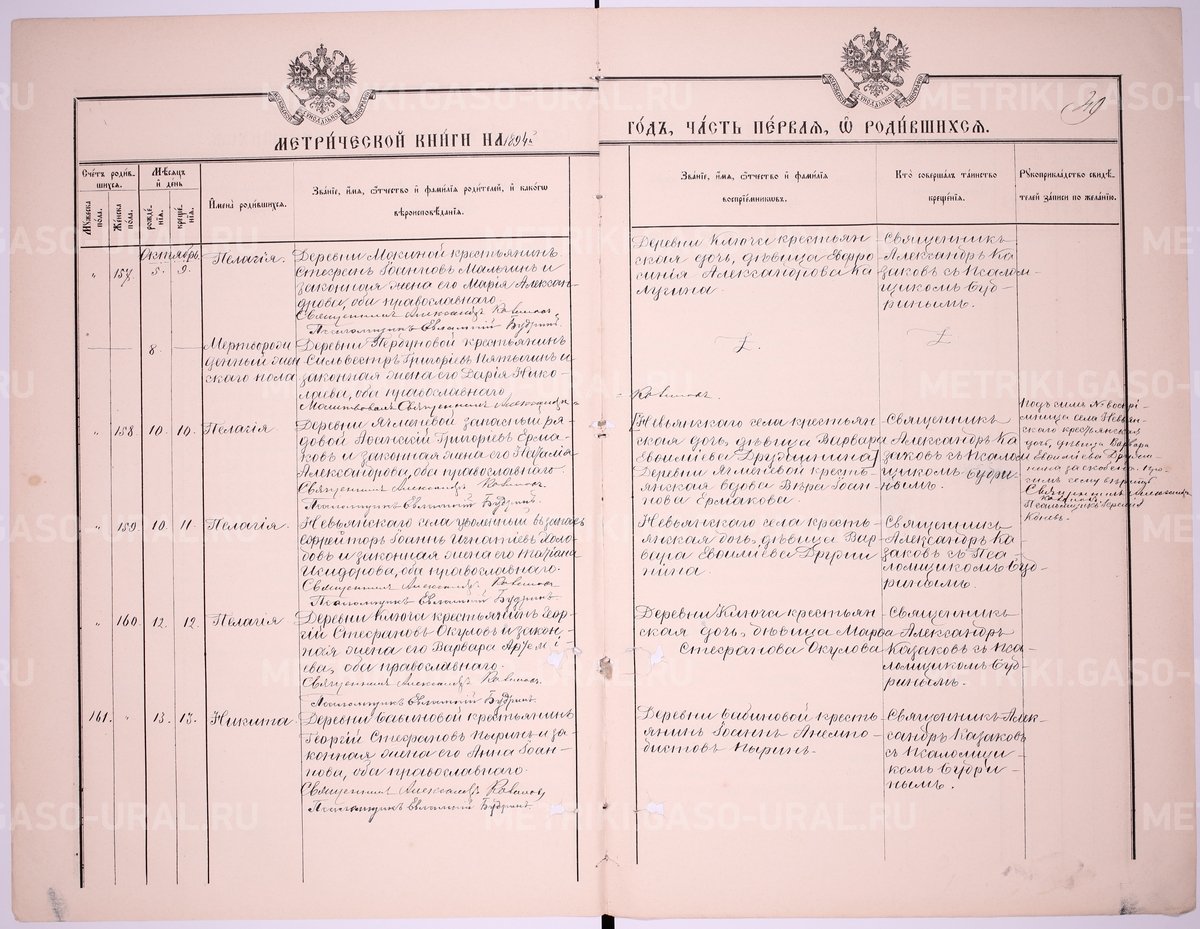 МЕТРИ́ЧЕСКОЙ КНИ́ГИ НА 1894 ГО́ДЪ, ЧА́СТЬ ПЕ́РВАЯ, Ѿ РОДИ́ВШИХСѦ.
Сче́тъ роди́в-
шихся.
Мѣ́сяцъ
и день
Му́жеска
по́ла.
Же́нска
по́ла.
рожде́-
нія.
креще́-
нія.
И́мена роди́вшихся.
Зва́ніе, и́мя, о́тчество и фами́лія роди́телей, и како́гѡ
вѣроисповѣ́данія.
Зва́ніе, и́мя, о́тчество и фами́лія
воспріе́мниковъ.
Кто̀ соверша́лъ та́инство
креще́нія.
Рукоприкла́дство свидѣ́-
телей за́писи по жела́нію.
Октябрь
„ 157. 5. 9. Пелагія.
Деревни Мокиной крестьянинъ
Стефанъ Іоанновъ Малыгинъ и
законная жена его Марія Алексан-
дрова, оба православнаго.
Священникъ Александръ Казаковъ
Псаломщикъ Евлампій Будринъ.
Деревни Ключа крестьян-
ская дочь, дѣвица Евфро-
синія Александрова Ка-
лугина.
Священникъ
Александръ Ка-
заковъ съ Псалом-
щикомъ Буд-
ринымъ.
8. Мертворож-
денный жен-
скаго пола
Деревни Гербуновой крестьянинъ
Сильвестръ Григорьевъ Пятыгинъ и
законная жена его Дарія Нико-
лаева, оба православнаго.
Молитвовалъ Священникъ Александръ
Казаковъ.
„ 158. 10. 10. Пелагія
Деревни Ячменевой запасный ря-
довой Іоанникій Григорьевъ Ерма-
ковъ и законная жена его Наталія
Александрова, оба православнаго.
Священникъ Александръ Казаковъ.
Псаломщикъ Евлампій Будринъ.
Невьянскаго села крестьян-
ская дочь, дѣвица Варвара
Евфиміева Дружинина
Деревни Ячменевой кресть-
янская вдова Вѣра Іоан-
нова Ермакова.
Священникъ
Александръ Ка-
заковъ съ Псалом-
щикомъ Будри-
нымъ.
Подъ симъ № воспрі-
емница села Невьян-
скаго крестьянская
дочь, дѣвица Варвара
Евфиміева Дружи-
нина
Священникъ Александръ
Казаковъ.
Псаломщикъ
„ 159. 10. 11. Пелагія.
Невьянскаго села уволенный въ запасъ
ефрейторъ Іоаннъ Игнатіевъ Холо-
довъ и законная жена его Татіана
Исидорова, оба православнаго.
Священникъ Александръ Казаковъ
Псаломщикъ Евлампій Будринъ.
Невьянскаго села кресть-
янская дочь, дѣвица Вар-
вара Евфиміева Дружи-
нина.
Священникъ
Александръ Ка-
заковъ съ Пса-
ломщикомъ Буд-
ринымъ.
„ 160. 12. 12. Пелагія
Деревни Ключа крестьянинъ Геор-
гій Стефановъ Окуловъ и закон-
ная жена его Варвара Артемі-
ева, оба православнаго.
Священникъ Александръ Казаковъ.
Псаломщикъ Евлампій Будринъ.
Деревни Ключа крестьян-
ская дочь, дѣвица Марѳа
Стефанова Окулова
Священникъ
Александръ
Казаковъ съ Пса-
ломщикомъ Буд-
ринымъ.
161. „ 13. 13. Никита
Деревни Бабиновой крестьянинъ
Георгій Стефановъ Пыринъ и за-
конная жена его Анна Іоан-
нова, оба православнаго.
Священникъ Александръ Казаковъ
Псаломщикъ Евлампій Будринъ.
Деревни Бабиновой кресть-
янинъ Іоаннъ Анемпо-
дистовъ Пыринъ.
Священникъ Алек-
сандръ Казаковъ
съ Псаломщи-
комъ Будри-
нымъ.
METRIKI.GASO-URAL.RU